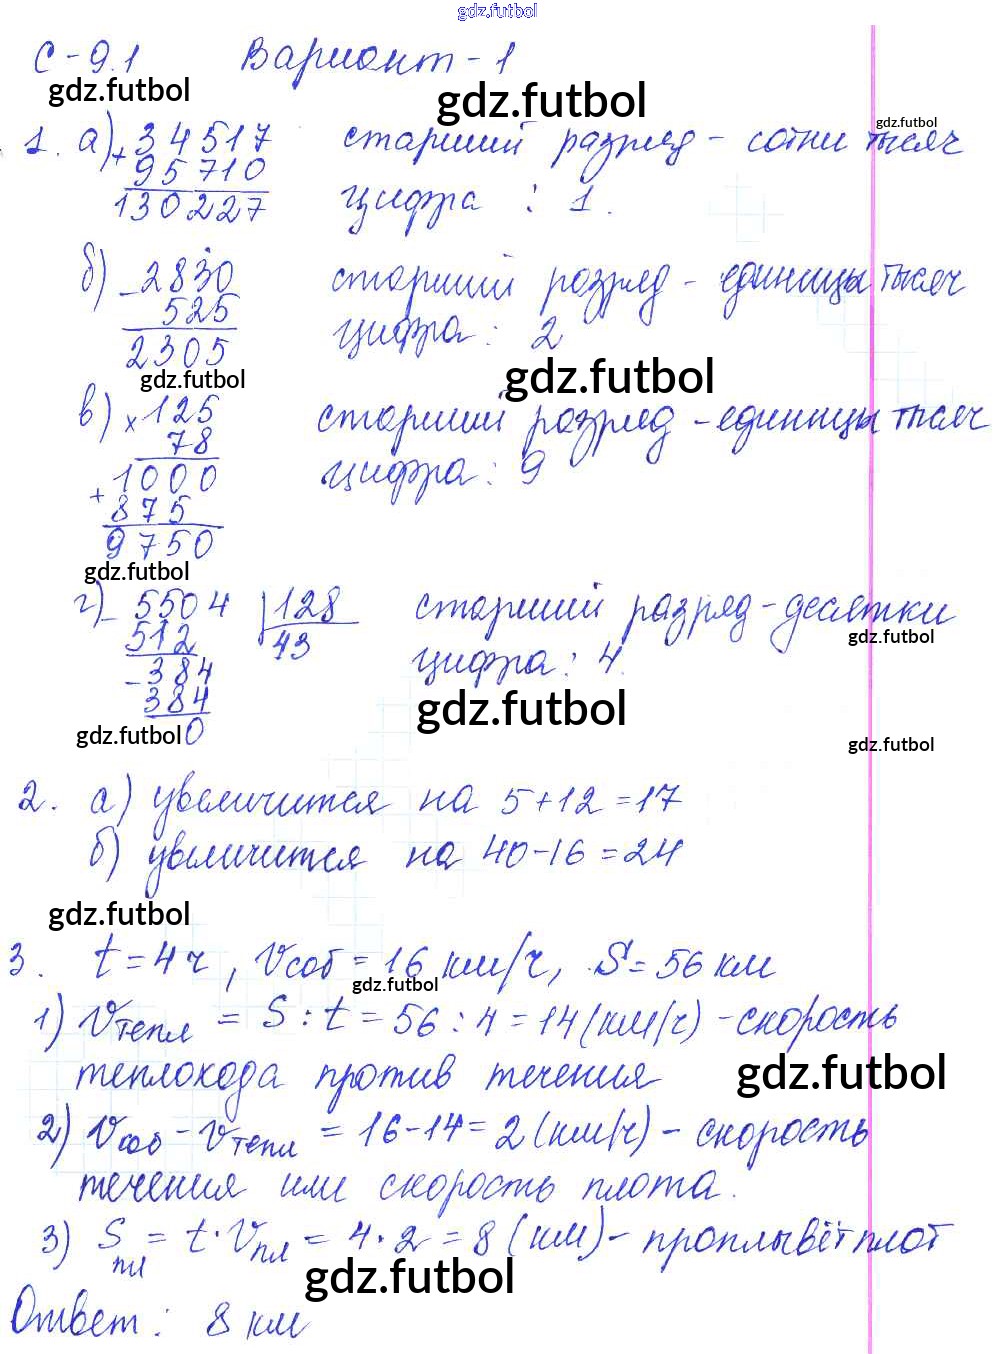 gdz.futbol
С-9.1 Вариант-1
gdz.futbol gdz.futbol gdz.futbol
1. а) + 34517 старший разряд - сотни тысяч
95710
130227 цифра : 1.
б) - 2830 старший разряд - единицы тысяч
525 цифра : 2
2305
gdz.futbol gdz.futbol
в) x 125 старший разряд - единицы тысяч
78
1000 цифра : 9
+ 875
9750
gdz.futbol
г) - 5504 | 128 старший разряд - десятки
512 43 gdz.futbol
- 384 цифра : 4.
384 gdz.futbol
gdz.futbol 0 gdz.futbol
2. а) увеличится на 5+12=17
б) увеличится на 40-16=24
gdz.futbol
3. t=4ч, Vсоб=16 км/ч, S=56 км
gdz.futbol
1) Vтепл = S : t = 56 : 4 = 14 (км/ч) - скорость
теплохода против течения gdz.futbol
2) Vсоб - Vтепл = 16-14=2 (км/ч) - скорость
течения или скорость плота.
3) Sпл = t · Vпл = 4 · 2 = 8 (км) - проплывёт плот
gdz.futbol
Ответ : 8 км